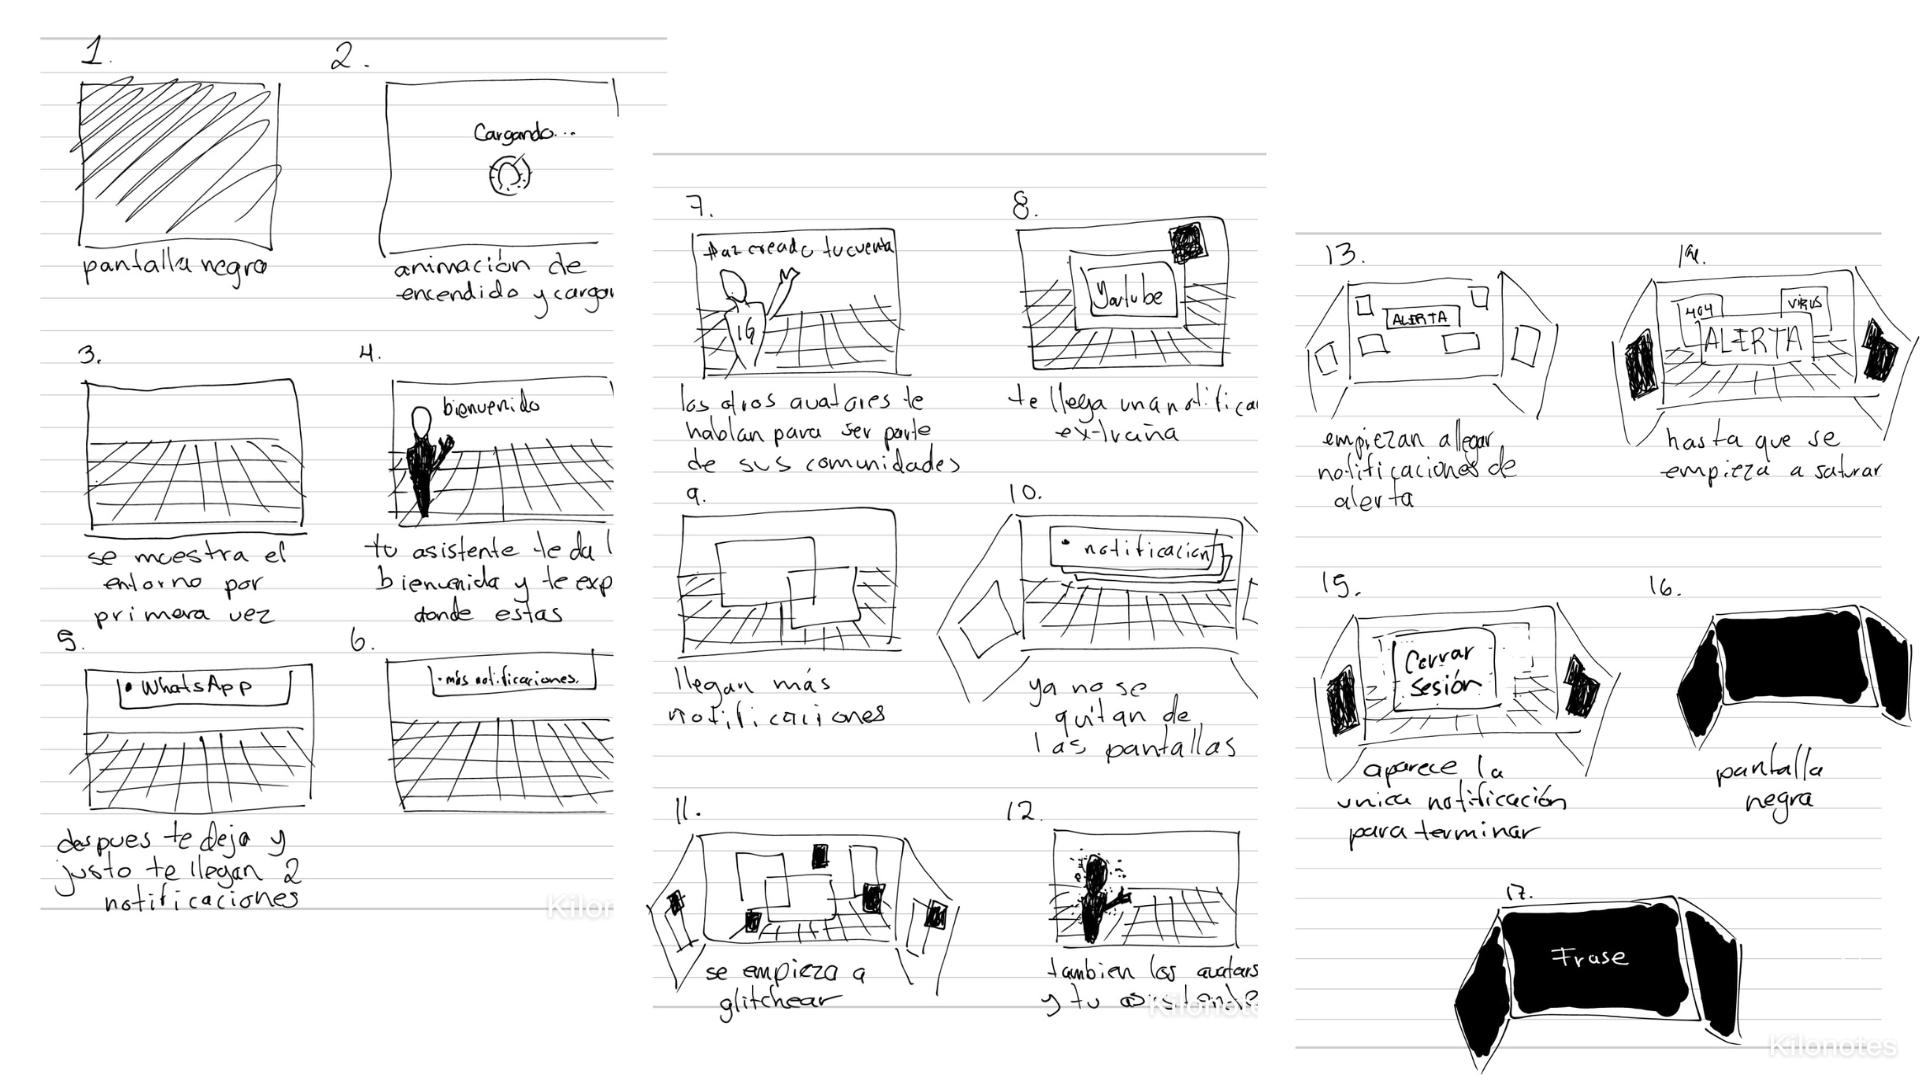 1.
pantalla negra
2.
Cargando...
animación de
encendido y cargar
3.
se muestra el
entorno por
primera vez
4.
bienvenido
tu asistente te da l
bienvenida y te exp
donde estas
5.
• WhatsApp
despues te deja y
justo te llegan 2
notificaciones
6.
• más notificaciones.
7.
Haz creado tu cuenta
IG
los otros avatares te
hablan para ser parte
de sus comunidades
8.
Youtube
te llega una notifica
extraña
9.
llegan más
notificaciones
10.
• notificacion
ya no se
quitan de
las pantallas
11.
se empieza a
glitchear
12.
tambien los avatars
y tu asistente
13.
ALERTA
empiezan a llegar
notificaciones de
alerta
14.
404
VIRUS
ALERTA
hasta que se
empieza a saturar
15.
Cerrar
sesión
aparece la
unica notificación
para terminar
16.
pantalla
negra
17.
Frase
Kilon
Kilonote
Kilonotes